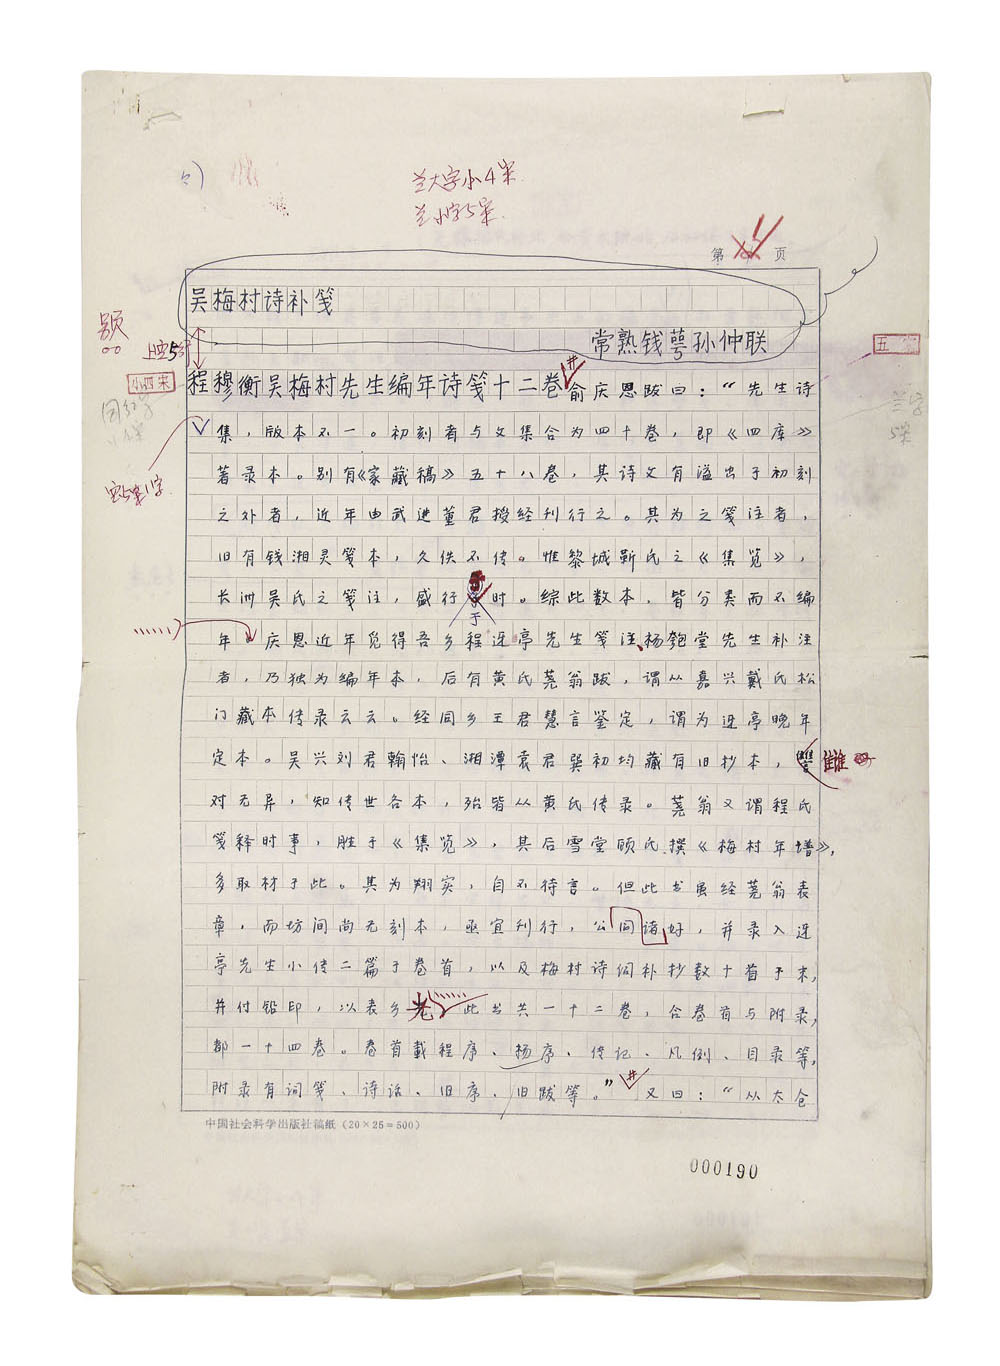 兰大字小4宋
兰小字5宋
第 页
吴梅村诗补笺
题
空5
常熟钱萼孙仲联
五
小四宋
程穆衡吴梅村先生编年诗笺十二卷俞庆恩跋曰：“先生诗
集，版本不一。初刻者与文集合为四十卷，即《四库》
著录本。别有《家藏稿》五十八卷，其诗文有溢出于初刻
空5宋1字
之外者，近年由武进董君授经刊行之。其为之笺注者，
旧有钱湘灵笺本，久佚不传。惟黎城靳氏之《集览》，
长洲吴氏之笺注，盛行于时。综此数本，皆分类而不编
年 庆恩近年觅得吾乡程迓亭先生笺注、杨匏堂先生补注
者，乃独为编年本，后有黄氏荛翁跋，谓从嘉兴戴氏松
门藏本传录云云。经同乡王君慧言鉴定，谓为迓亭晚年
定本。吴兴刘君翰怡、湘潭袁君巽初均藏有旧抄本，雠
对无异，知传世各本，殆皆从黄氏传录。荛翁又谓程氏
笺释时事，胜于《集览》，其后雪堂顾氏撰《梅村年谱》，
多取材于此。其为翔实，自不待言。但此书虽经荛翁表
章，而坊间尚无刻本，亟宜刊行，公同诸好，并录入迓
亭先生小传二篇于卷首，以及梅村诗词补抄数十首于末，
并付铅印，以表乡先 此书共一十二卷，合卷首与附录，
都一十四卷。卷首载程序、杨序、传记、凡例、目录等，
附录有词笺、诗话、旧序、旧跋等。” 又曰：“从太仓
中国社会科学出版社稿纸（20×25=500）
000190